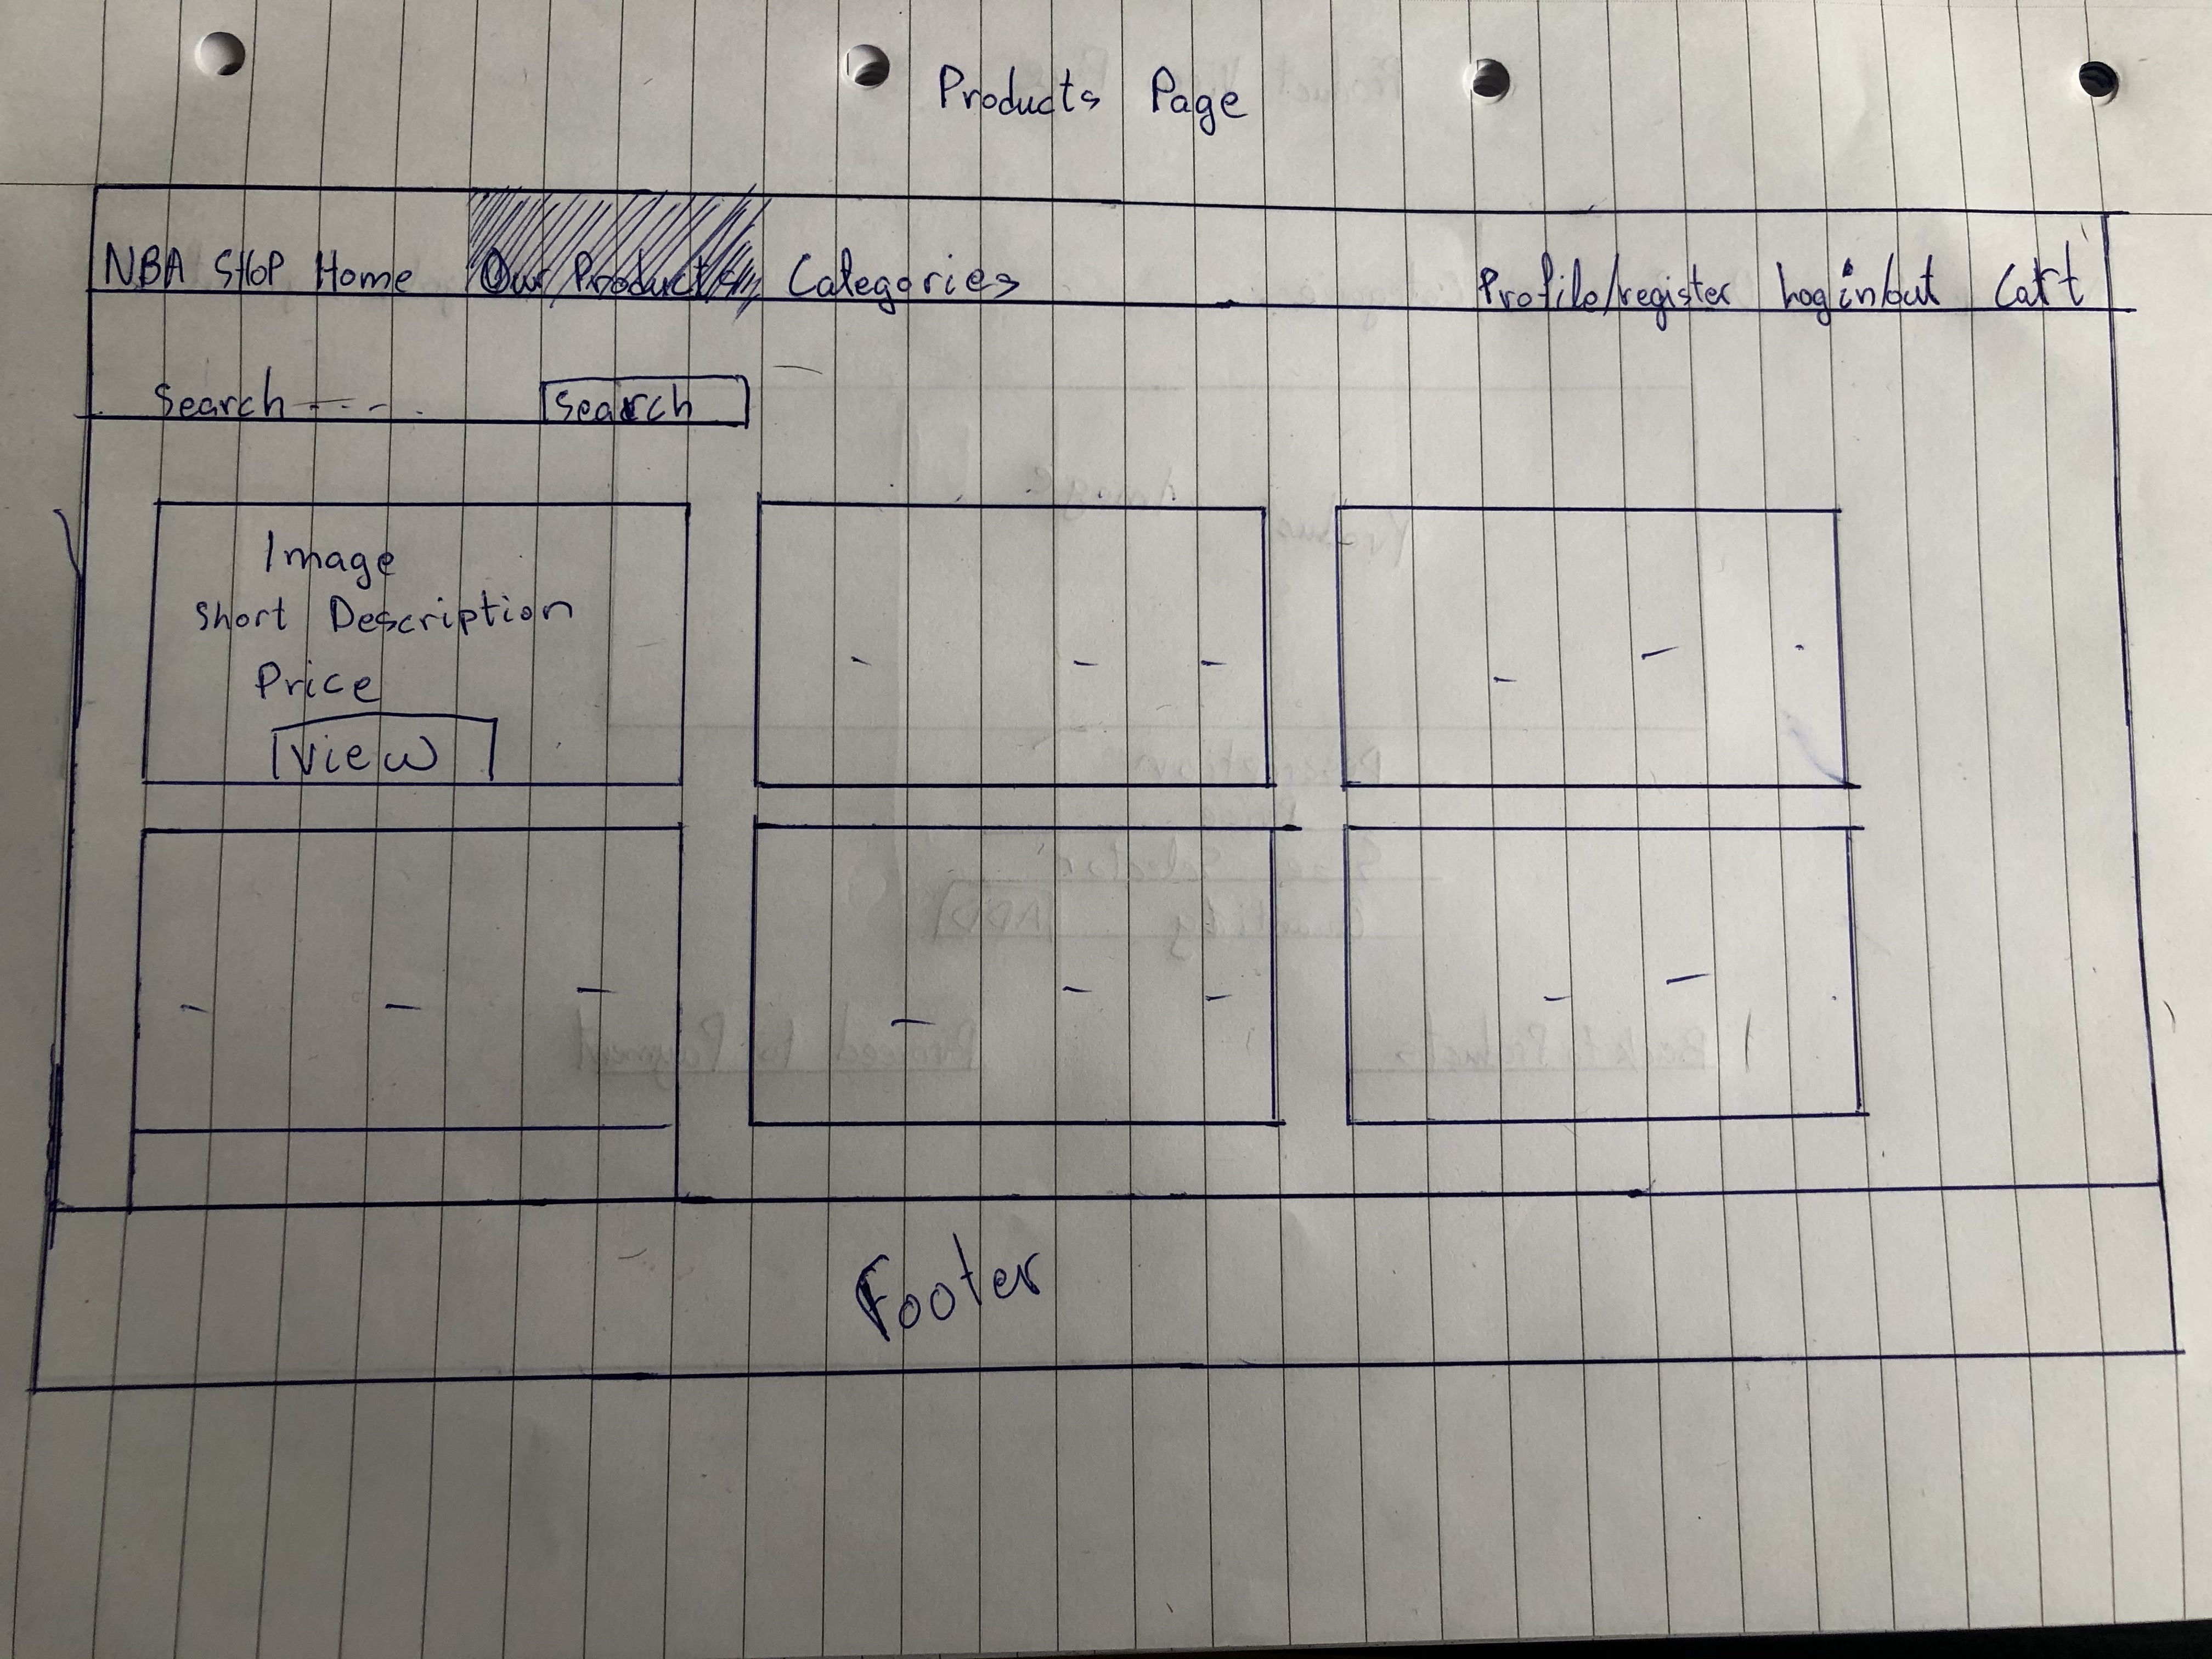 Products Page
NBA SHOP Home Our Products Categories Profile/register Login/out Cart
Search - - - . Search
Image
Short Description
Price
View
Footer